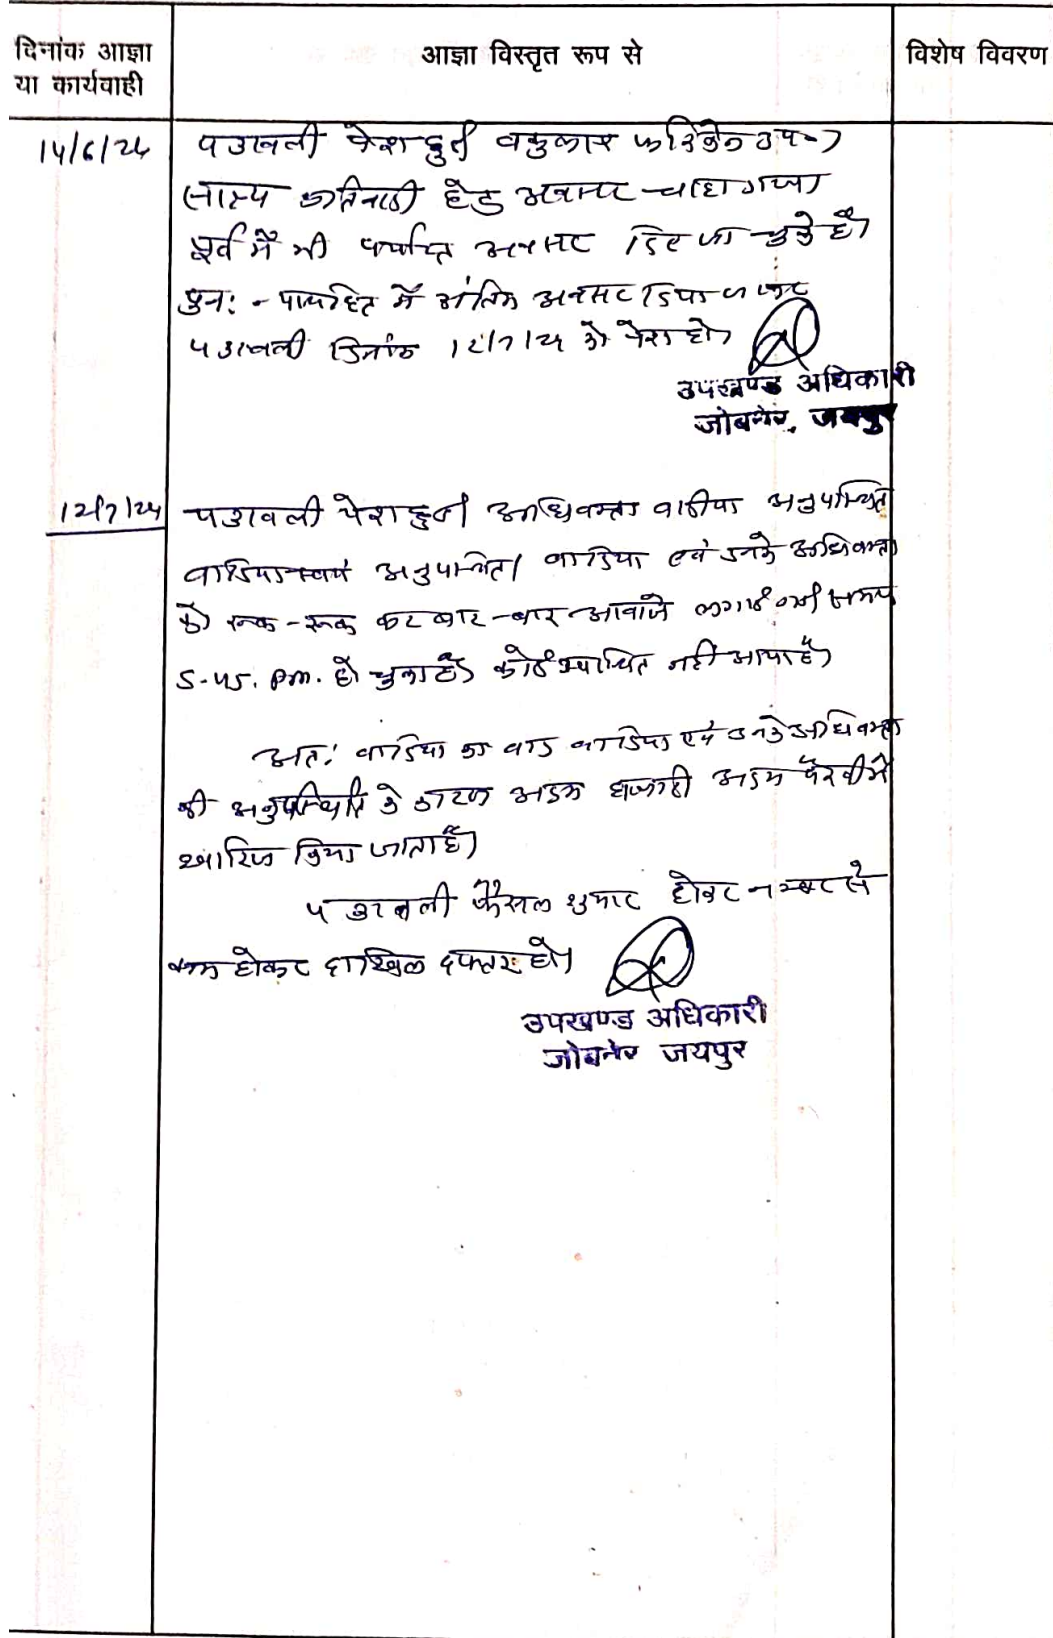 दिनांक आज्ञा
या कार्यवाही
आज्ञा विस्तृत रूप से
विशेष विवरण
14/6/24
पत्रावली पेश हुई वकुलाय फरिकेन उप०
साक्ष्य प्रतिवादी हेतु अवसर चाहा गया
पूर्व में भी पर्याप्त अवसर दिए जा चुके है।
पुनः न्यायहित में अंतिम अवसर दिया जाकर
पत्रावली दिनांक 12/7/24 को पेश हो।
उपखण्ड अधिकारी
जोबनेर, जयपुर
12/7/24
पत्रावली पेश हुई। अधिवक्ता वादीया अनुपस्थित
वादिया स्वयं अनुपस्थित। वादिया एवं उनके अधिवक्ता
को रूक-रूक कर बार-बार आवाजे लगाई गयी समय
5.45. pm. हो चुका है। कोई उपस्थित नही आया है।
अतः वादिया का वाद वादिया एवं उनके अधिवक्ता
की अनुपस्थिति के कारण अदम हाजरी अदम पैरवी मे
खारिज किया जाता है।
पत्रावली फैसल शुमार होकर नम्बर से
कम होकर दाखिल दफ्तर हो।
उपखण्ड अधिकारी
जोबनेर जयपुर